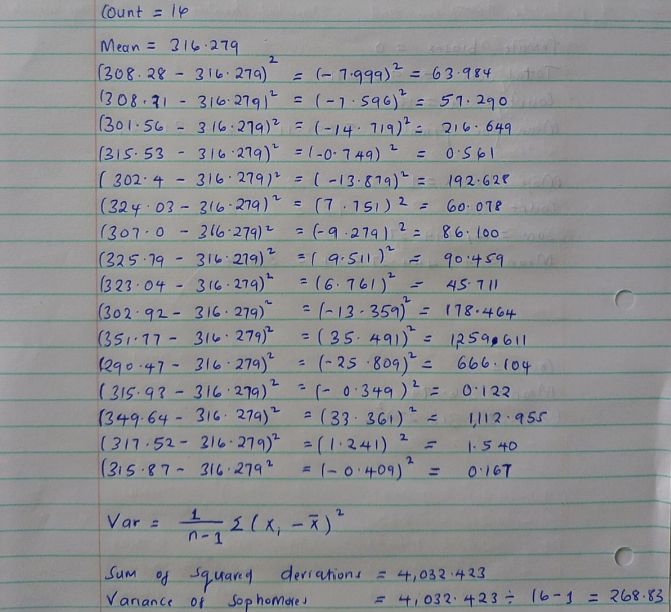 Count = 16
Mean = 316.279
(308.28 - 316.279)² = (-7.999)² = 63.984
(308.71 - 316.279)² = (-7.596)² = 57.290
(301.56 - 316.279)² = (-14.719)² = 216.649
(315.53 - 316.279)² = (-0.749)² = 0.561
(302.4 - 316.279)² = (-13.879)² = 192.628
(324.03 - 316.279)² = (7.751)² = 60.078
(307.0 - 316.279)² = (-9.279)² = 86.100
(325.79 - 316.279)² = (9.511)² = 90.459
(323.04 - 316.279)² = (6.761)² = 45.711
(302.92 - 316.279)² = (-13.359)² = 178.464
(351.77 - 316.279)² = (35.491)² = 1259.611
(290.47 - 316.279)² = (-25.809)² = 666.104
(315.93 - 316.279)² = (-0.349)² = 0.122
(349.64 - 316.279)² = (33.361)² = 1,112.955
(317.52 - 316.279)² = (1.241)² = 1.540
(315.87 - 316.279² = (-0.409)² = 0.167
Var = 1/(n-1) Σ(x, - x̄)²
Sum of squared deviations = 4,032.423
Variance of sophomores = 4,032.423 ÷ 16-1 = 268.83